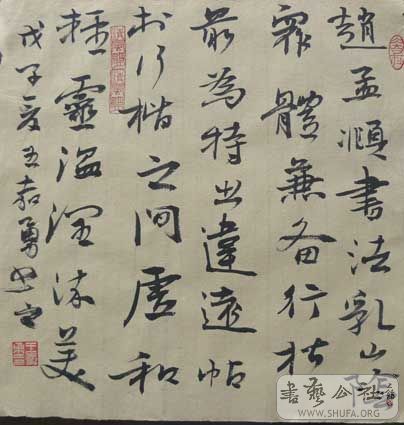 趙孟頫書法乳山陰
眾體兼备行楷
最為特出違遠帖
於行楷之间虛和
輕靈温潤流美
戊子夏王嘉勇書之
書藝公社
WWW.SHUFA.ORG